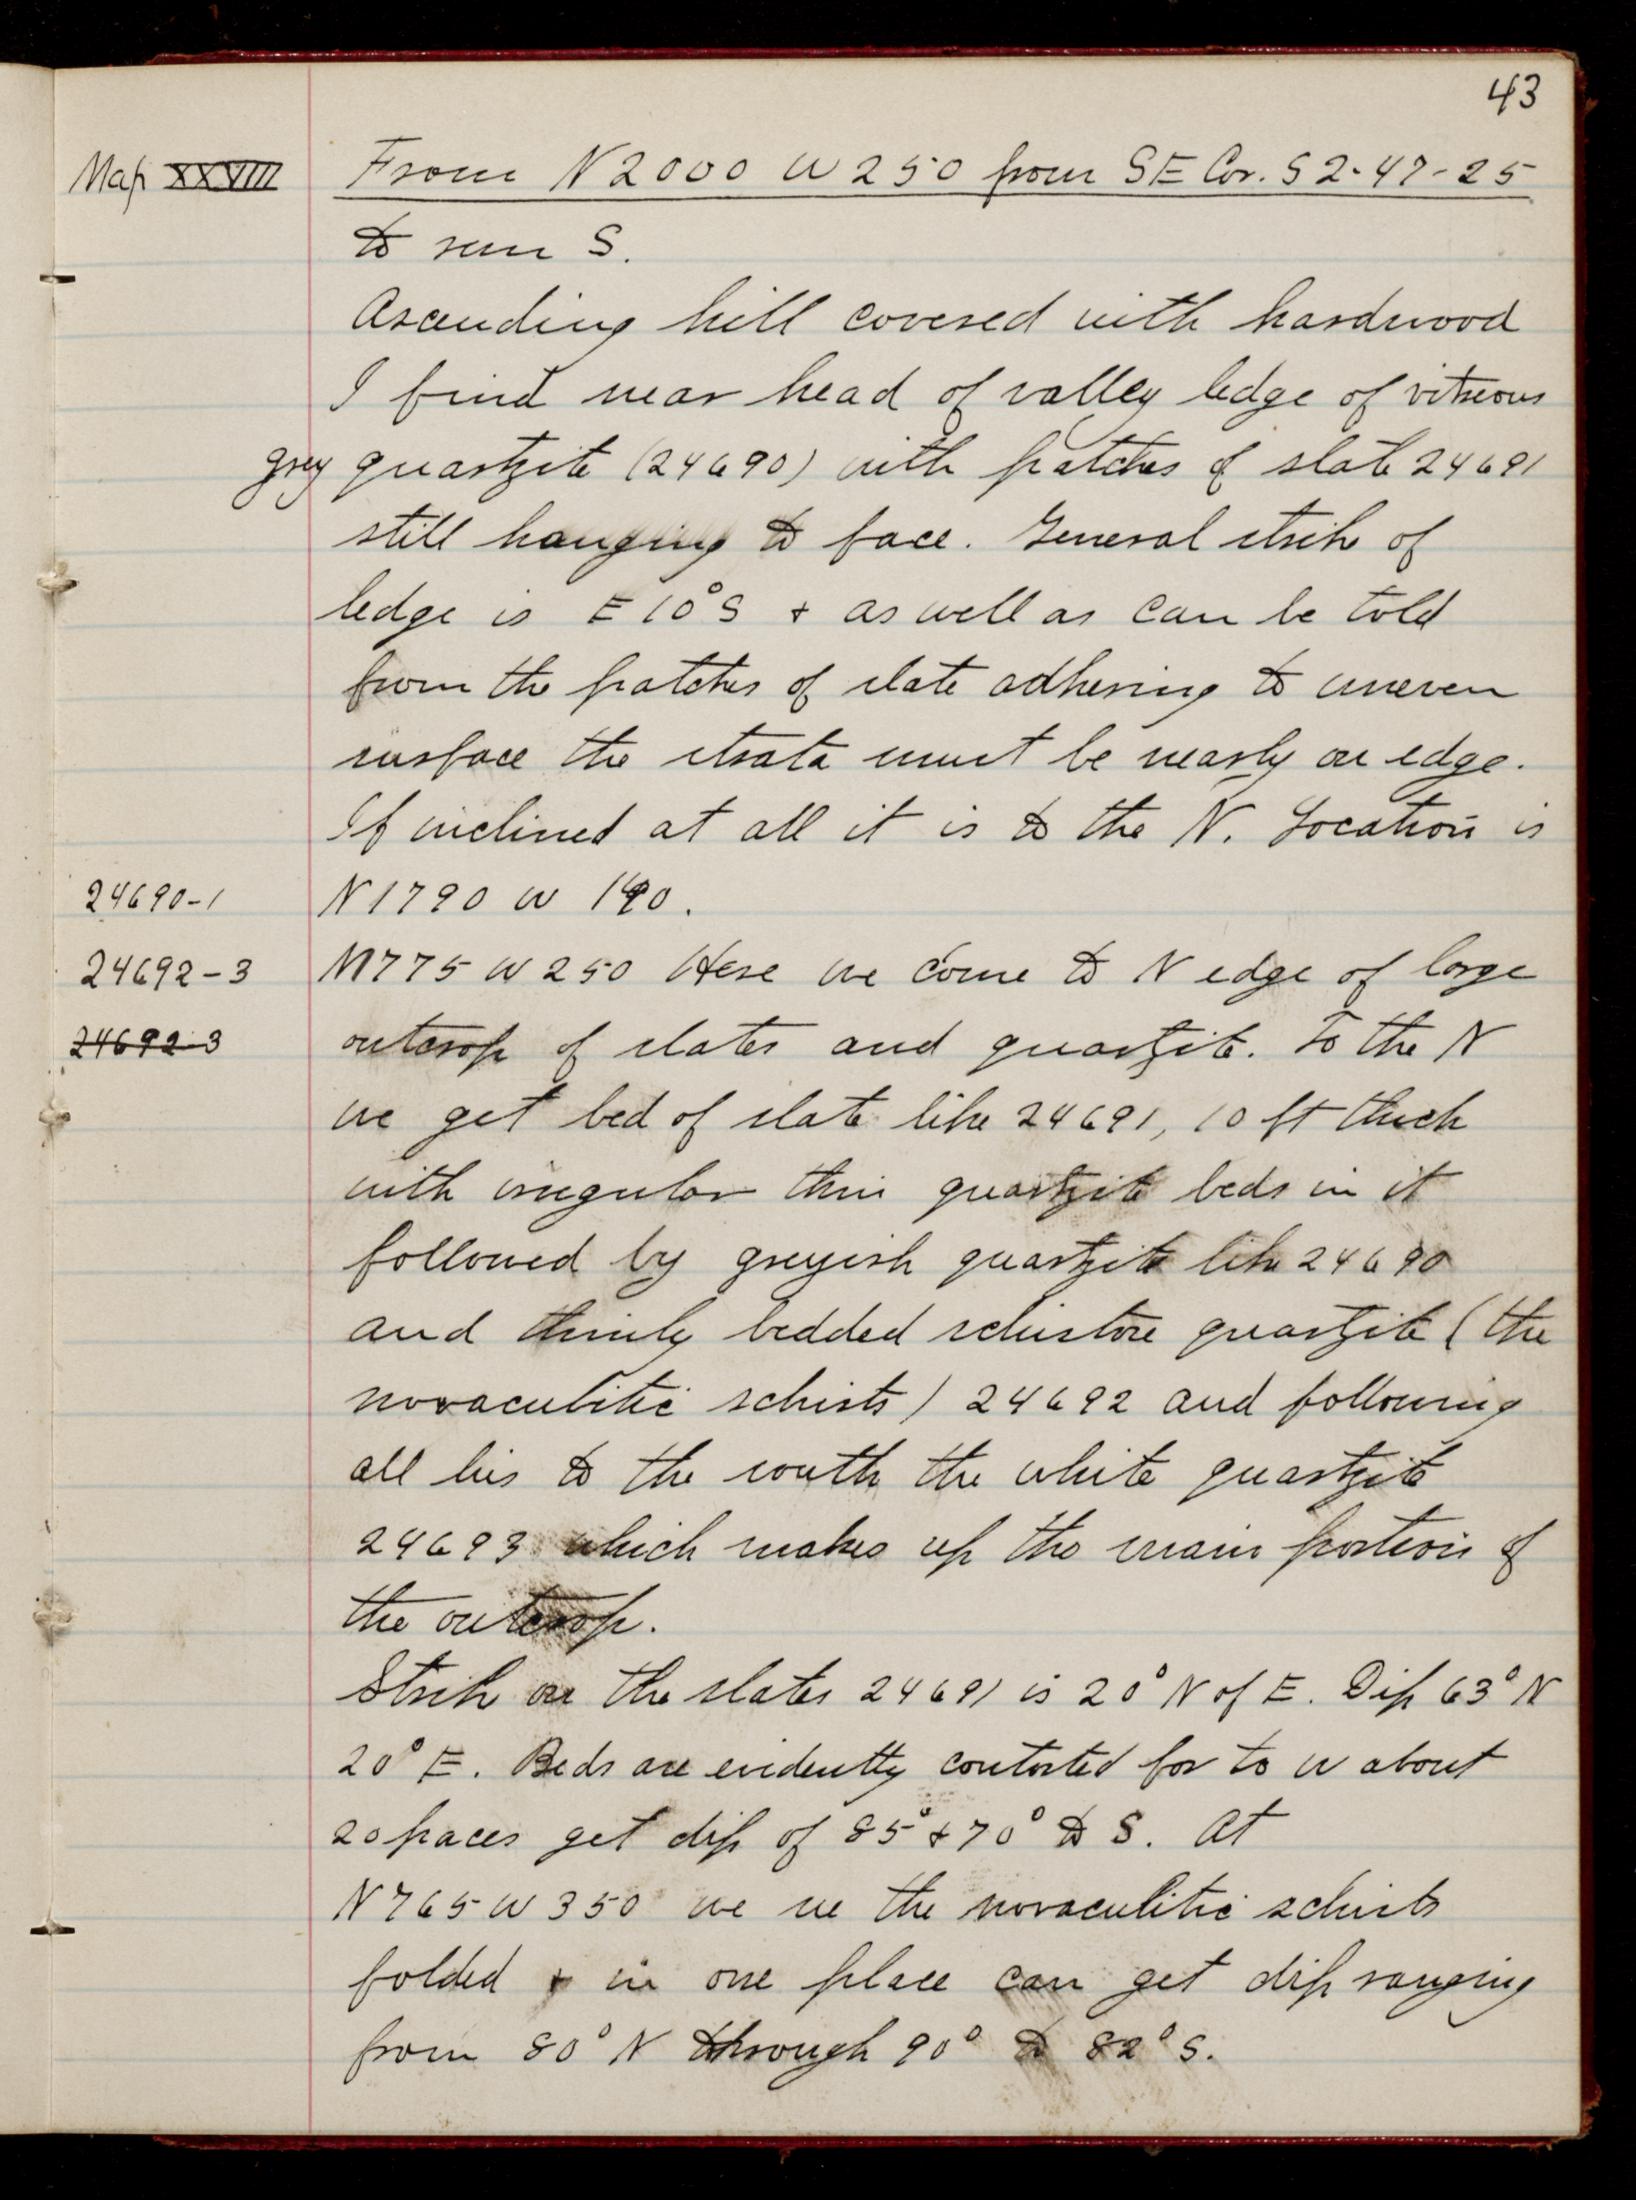 43
Map XXVIII
From N2000 W250 from SE Cor. S 2-47-25
to run S.
Ascending hill covered with hardwood
I find near head of valley ledge of vitreous
grey quartzite (24690) with patches of slate 24691
still hanging to face. General strike of
ledge is E 10° S + as well as can be told
from the patches of slate adhering to uneven
surface the strata must be nearly on edge.
If inclined at all it is to the N. Location is
24690-1 N1790 W 190.
24692-3 N775 W250 Here we come to N edge of large
24692-3 outcrop of slates and quartzite. To the N
we get bed of slate like 24691, 10 ft thick
with irregular thin quartzite beds in it
followed by greyish quartzite like 24690
and thinly bedded schistose quartzite (the
novaculitic schists) 24692 and following
all lies to the south the white quartzite
24693 which makes up the main portion of
the outcrop.
Strike on the slates 24691 is 20° N of E. Dip 63° N
20° E. Beds are evidently contorted for to W about
20 paces get dip of 85° + 70° to S. At
N765 W350 we see the novaculitic schists
folded + in one place can get dip ranging
from 80° N through 90° to 82° S.